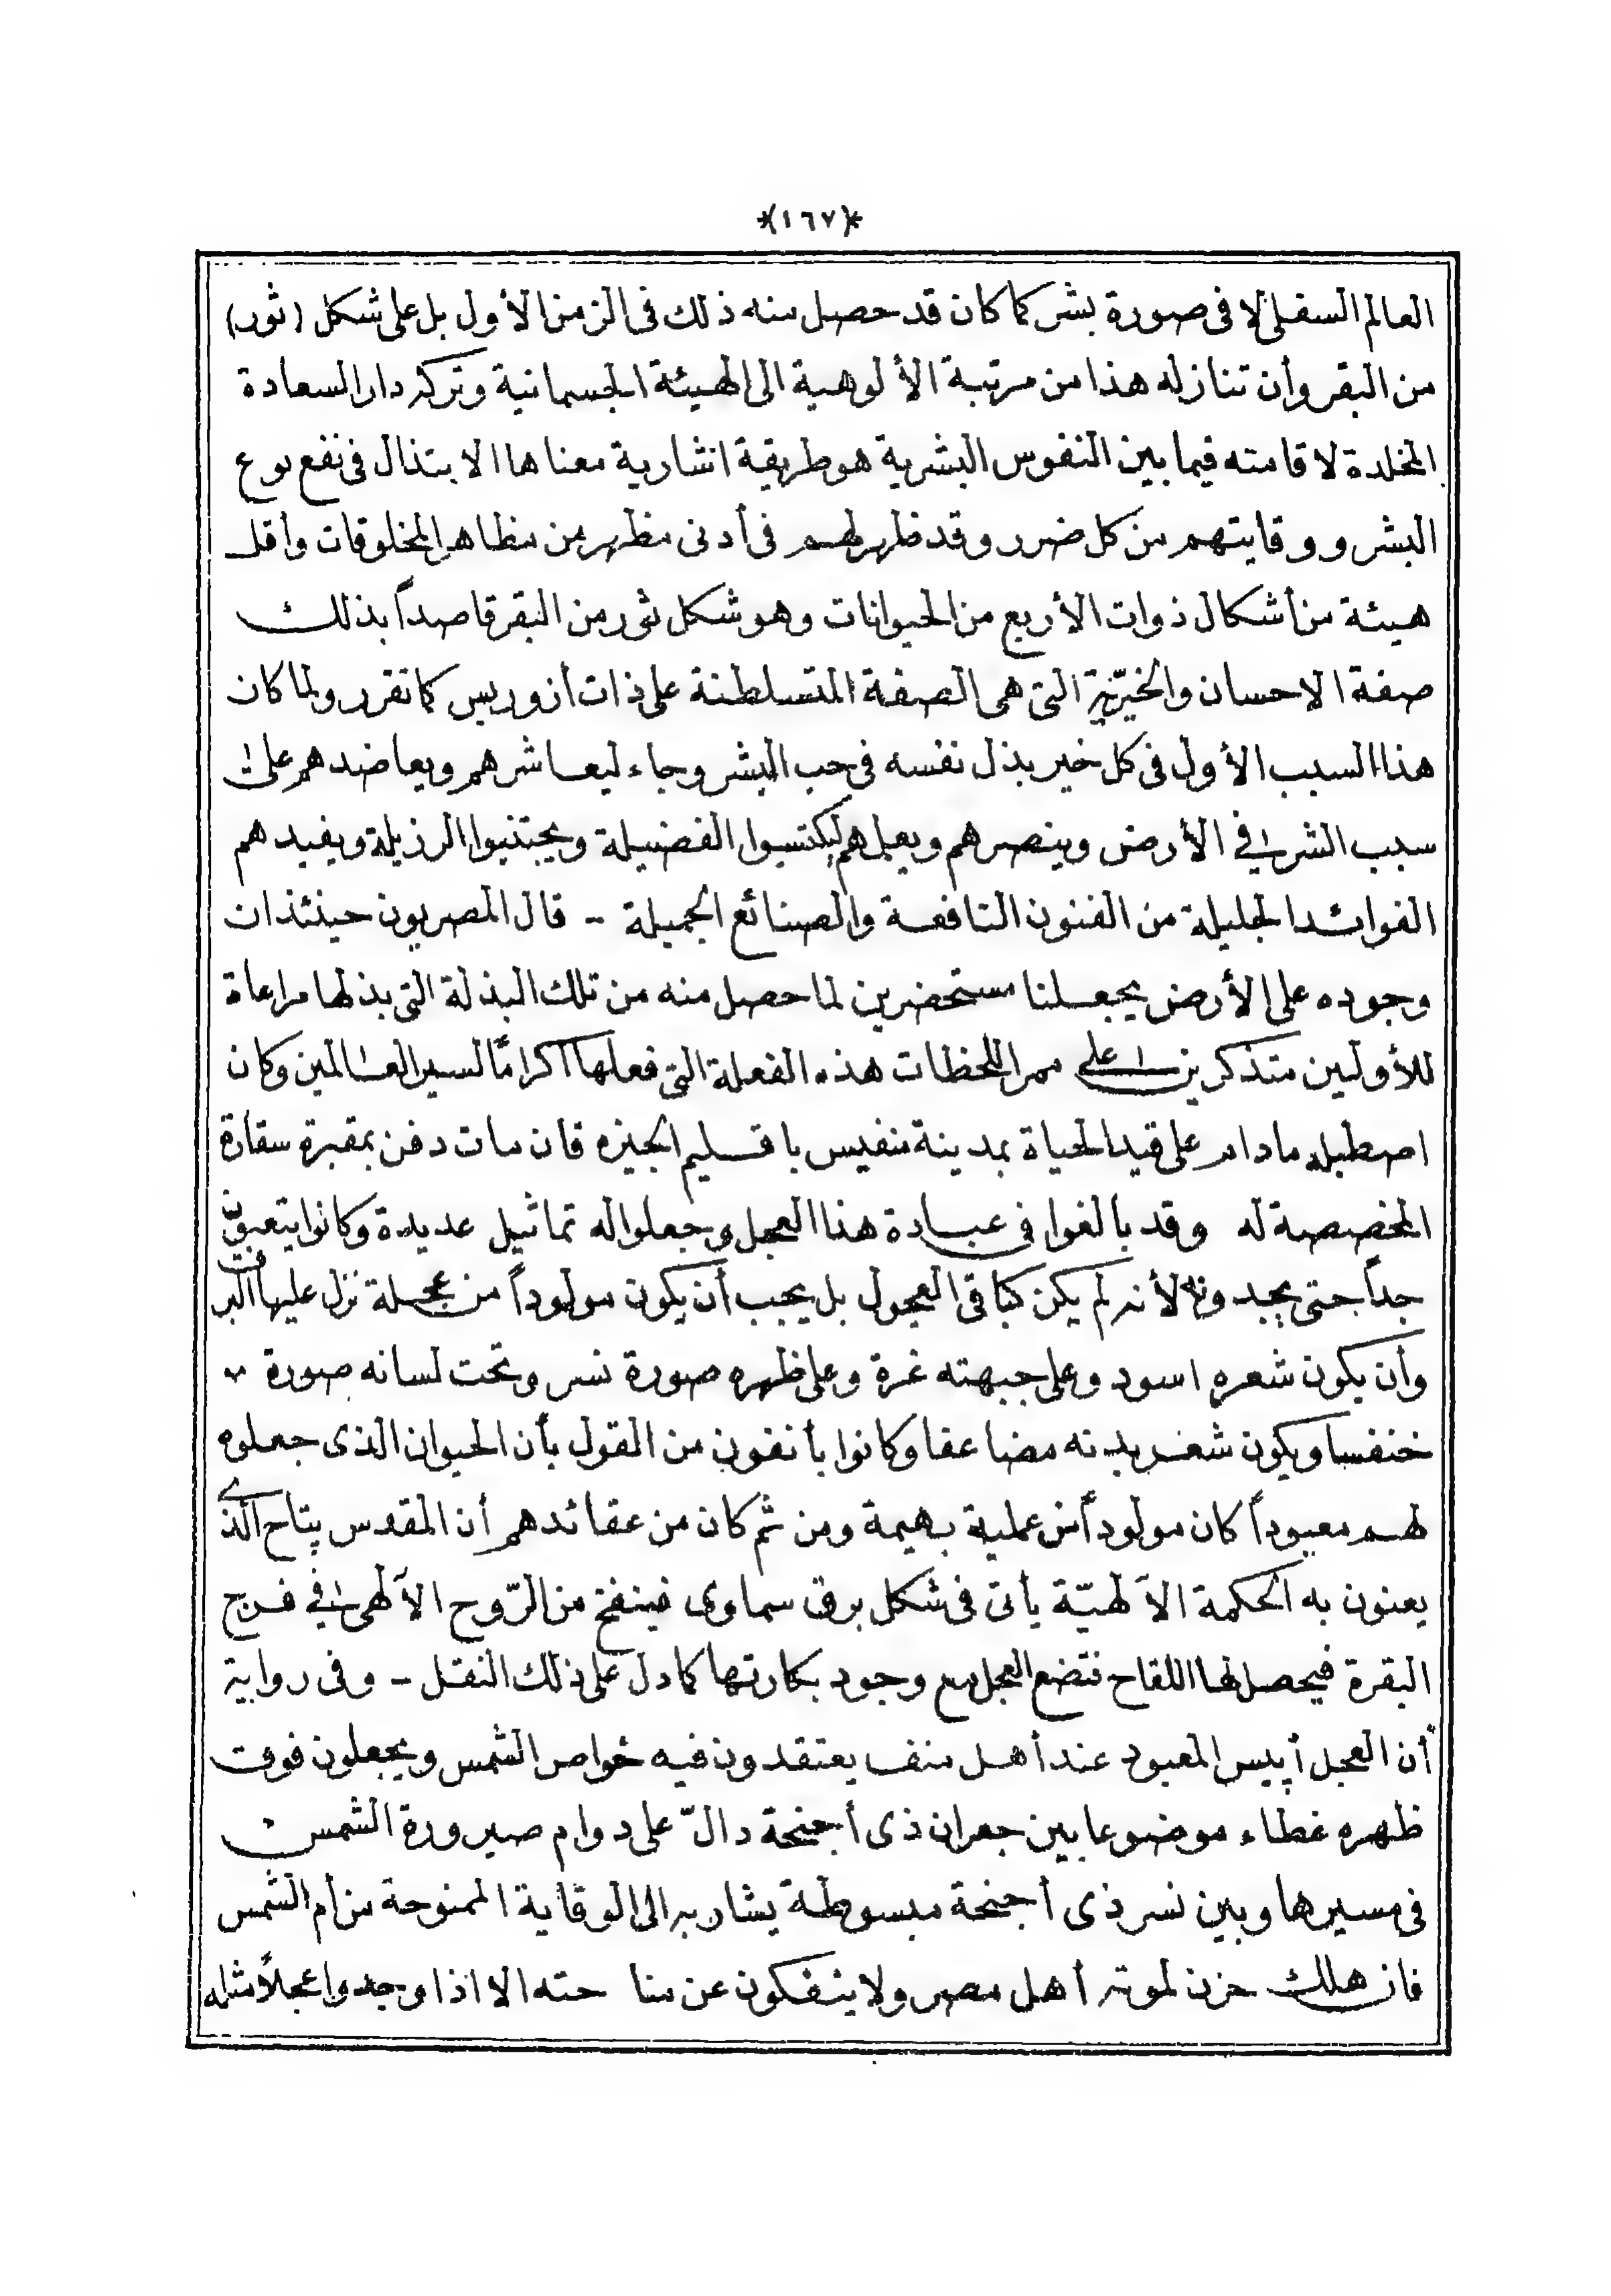 *(١٦٧)*
العالم السفلى لا فى صورة بشر كما كان قد حصل منه ذلك فى الزمن الأول بل على شكل (ثور)
من البقر وأن تنازله هذا من مرتبة الألوهية الى الهيئة الجسمانية وتركه دار السعادة
المخلدة لاقامته فيما بين النفوس البشرية هو طريقة اشارية معناها الابتذال فى نفع نوع
البشر ووقايتهم من كل ضرر وقد ظهر لهم فى أدنى مظهر من مظاهر المخلوقات وأقل
هيئة من أشكال ذوات الأربع من الحيوانات وهو شكل ثور من البقر قاصداً بذلك
صفة الاحسان والخيّرية التى هى الصفة المتسلطنة على ذات أزوريس كما تقرر ولما كان
هذا السبب الأول فى كل خير بذل نفسه فى حب البشر وجاء ليعاشرهم ويعاضدهم على
سبب الشر فى الأرض وينصرهم ويعلمهم ليكتسبوا الفضيلة ويجتنبوا الرزيلة ويفيدهم
الفوائد الجليلة من الفنون النافعة والصنائع الجميلة - قال المصريون حينئذ ان
وجوده على الأرض يجعلنا مستحضرين لما حصل منه من تلك البذلة التى بذلها مراعاة
للأولين متذكرين على ممر اللحظات هذه الفعلة التى فعلها اكراماً لسير العالمين وكان
اصطبله مادام على قيد الحياة بمدينة منفيس باقليم الجيزه فان مات دفن بمقبرة سقارة
المخصصة له وقد بالغوا فى عبادة هذا العجل وجعلوا له تماثيل عديدة وكانوا يتعبون
جداً حتى يجدونه لأنه لم يكن كباقى العجول بل يجب أن يكون مولوداً من عجلة نزل عليها البرق
وأن يكون شعره اسود وعلى جبهته غرة وعلى ظهره صورة نسر وتحت لسانه صورة
خنفسا ويكون شعر بدنه مضاعفا وكانوا يأنفون من القول بأن الحيوان الذى جعلوه
لهم معبوداً كان مولوداً من عملية بهيمة ومن ثم كان من عقائدهم أن المقدس پتاح الذى
يعنون به الحكمة الآلهيّة يأتى فى شكل برق سماوى فينفخ من الرّوح الآلهى فى فرج
البقرة فيحصل لها اللقاح فتضع العجل مع وجود بكارتها كما دل على ذلك النقل - وفى رواية
أن العجل أپيس المعبود عند أهل منف يعتقدون فيه خواص الشمس ويجعلون فوق
ظهره غطاء موضوعا بين جعران ذى أجنحة دالّ على دوام صيرورة الشمس
فى مسيرها وبين نسر ذى أجنحة مبسوطة يشار به الى الوقاية الممنوحة من أم الشمس
فان هلك حزن لموته أهل مصر ولا ينفكون عن مناحته الا اذا وجدوا عجلاً مثله